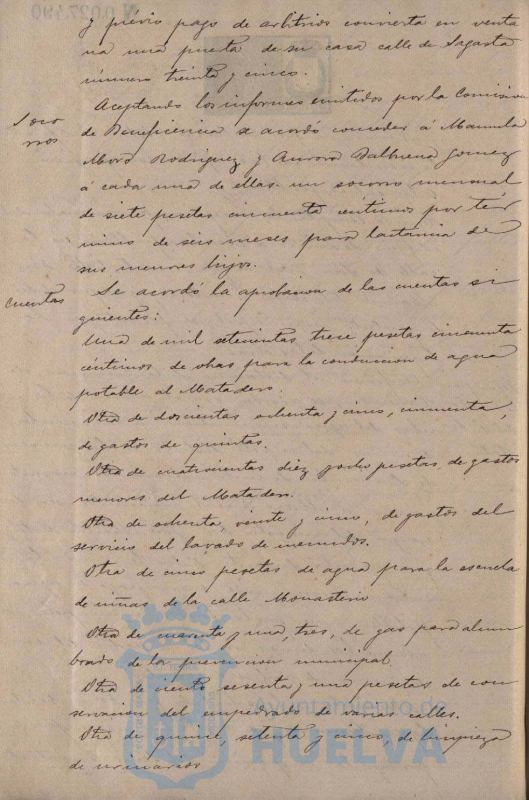 N 0.027.490
y previo pago de arbitrios convierta en venta
na una puerta de su casa calle de Sagasta
número treinta y cinco.
Soco
rros
Aceptando los informes emitidos por la Comision
de Beneficencia se acordó conceder á Manuela
Mora Rodriguez y Aurora Balbuena Gomez
á cada una de ellas un socorro mensual
de siete pesetas cincuenta céntimos por tér
mino de seis meses para lactancia de
sus menores hijos.
Cuentas
Se acordó la aprobacion de las cuentas si
guientes:
Una de mil setecientas trece pesetas cincuenta
céntimos de obras para la conduccion de agua
potable al Matadero.
Otra de doscientas ochenta y cinco, cincuenta,
de gastos de quintas.
Otra de cuatrocientas diez y ocho pesetas de gastos
menores del Matadero.
Otra de ochenta, veinte y cinco, de gastos del
servicio del lavado de menudos.
Otra de cinco pesetas de agua para la escuela
de niñas de la calle Monasterio
Otra de cuarenta y una, tres, de gas para alum
brado de la prevencion municipal.
Otra de ciento sesenta y una pesetas de con
servacion del empedrado de varias calles.
Otra de quince, setenta y cinco, de limpieza
de urinarios
Ayuntamiento de
HUELVA